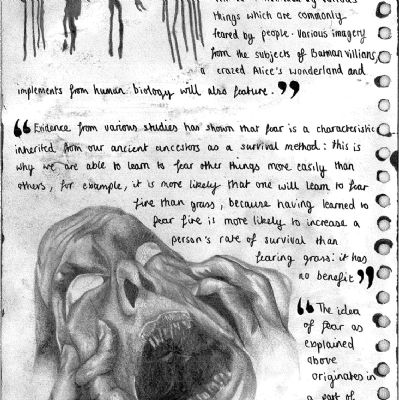 things which are commonly
feared by people. Various imagery
from the subjects of Batman villians,
a crazed Alice's wonderland and
implements from human biology will also feature.”
“Evidence from various studies has shown that fear is a characteristic
inherited from our ancient ancestors as a survival method: this is
why we are able to learn to fear other things more easily than
others, for example, it is more likely that one will learn to fear
fire than grass, because having learned to
fear fire is more likely to increase a
person's rate of survival than
fearing grass: it has
no benefit”
“The idea
of fear as
explained
above
originates in
a part of